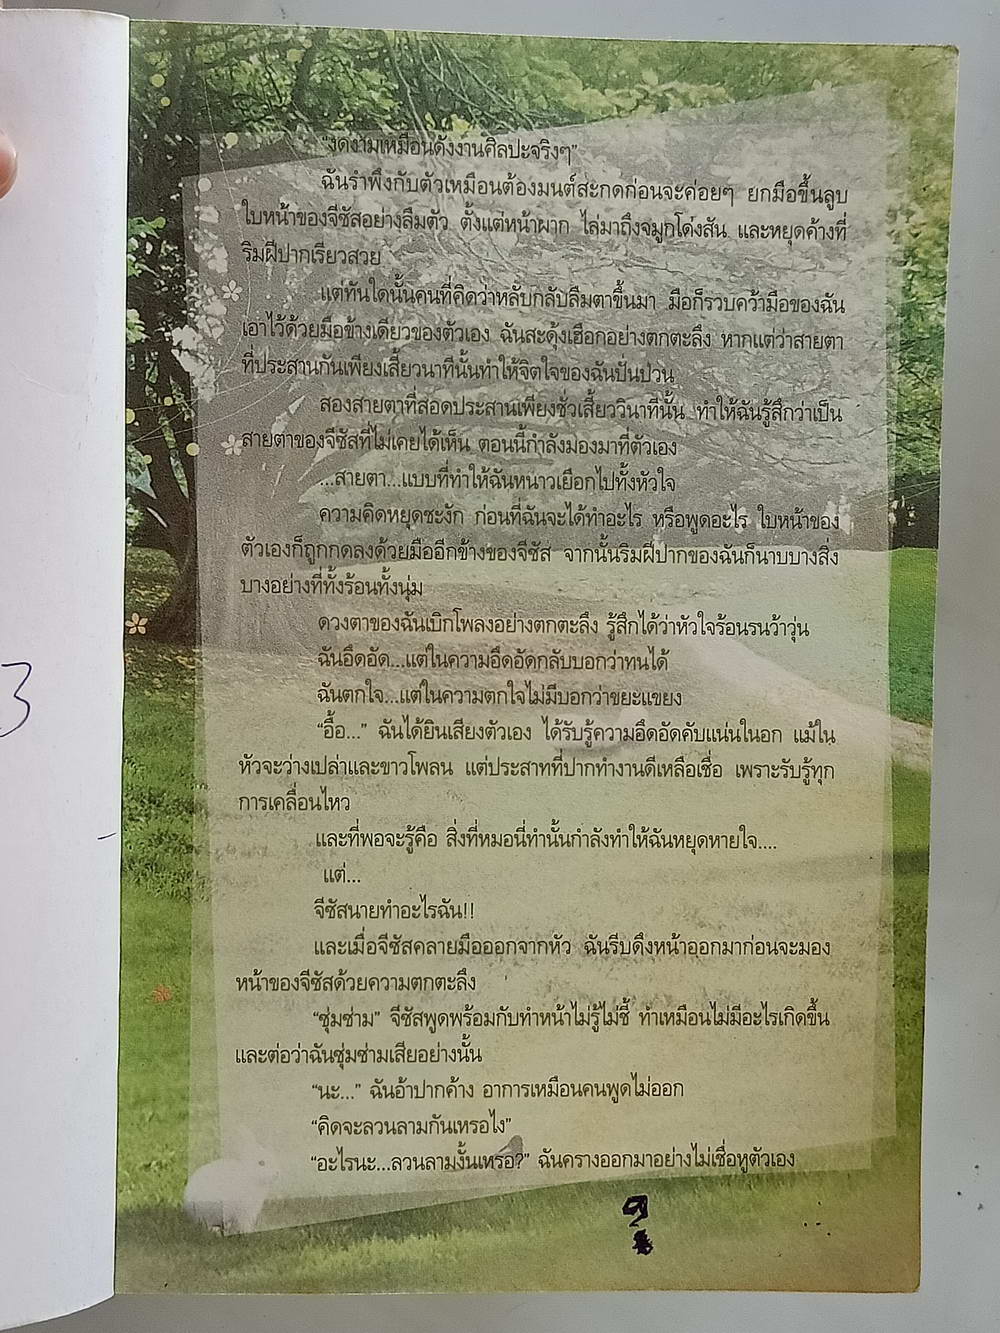 “งดงามเหมือนดั่งงานศิลปะจริงๆ”
ฉันรำพึงกับตัวเหมือนต้องมนต์สะกดก่อนจะค่อยๆ ยกมือขึ้นลูบ
ใบหน้าของจีซัสอย่างลืมตัว ตั้งแต่หน้าผาก ไล่มาถึงจมูกโด่งสัน และหยุดค้างที่
ริมฝีปากเรียวสวย
แต่ทันใดนั้นคนที่คิดว่าหลับกลับลืมตาขึ้นมา มือก็รวบคว้ามือของฉัน
เอาไว้ด้วยมือข้างเดียวของตัวเอง ฉันสะดุ้งเฮือกอย่างตกตะลึง หากแต่ว่าสายตา
ที่ประสานกันเพียงเสี้ยวนาทีนั้นทำให้จิตใจของฉันปั่นป่วน
สองสายตาที่สอดประสานเพียงชั่วเสี้ยววินาทีนั้น ทำให้ฉันรู้สึกว่าเป็น
สายตาของจีซัสที่ไม่เคยได้เห็น ตอนนี้กำลังมองมาที่ตัวเอง
...สายตา...แบบที่ทำให้ฉันหนาวเยือกไปทั้งหัวใจ
ความคิดหยุดชะงัก ก่อนที่ฉันจะได้ทำอะไร หรือพูดอะไร ใบหน้าของ
ตัวเองก็ถูกกดลงด้วยมืออีกข้างของจีซัส จากนั้นริมฝีปากของฉันก็นาบบางสิ่ง
บางอย่างที่ทั้งร้อนทั้งนุ่ม
ดวงตาของฉันเบิกโพลงอย่างตกตะลึง รู้สึกได้ว่าหัวใจร้อนรนว้าวุ่น
ฉันอึดอัด...แต่ในความอึดอัดกลับบอกว่าทนได้
ฉันตกใจ...แต่ในความตกใจไม่มีบอกว่าขยะแขยง
“อื้อ...” ฉันได้ยินเสียงตัวเอง ได้รับรู้ความอึดอัดคับแน่นในอก แม้ใน
หัวจะว่างเปล่าและขาวโพลน แต่ประสาทที่ปากทำงานดีเหลือเชื่อ เพราะรับรู้ทุก
การเคลื่อนไหว
และที่พอจะรู้คือ สิ่งที่หมอนี่ทำนั้นกำลังทำให้ฉันหยุดหายใจ....
แต่...
จีซัสนายทำอะไรฉัน!!
และเมื่อจีซัสคลายมือออกจากหัว ฉันรีบดึงหน้าออกมาก่อนจะมอง
หน้าของจีซัสด้วยความตกตะลึง
“ซุ่มซ่าม” จีซัสพูดพร้อมกับทำหน้าไม่รู้ไม่ชี้ ทำเหมือนไม่มีอะไรเกิดขึ้น
และต่อว่าฉันซุ่มซ่ามเสียอย่างนั้น
“นะ...” ฉันอ้าปากค้าง อาการเหมือนคนพูดไม่ออก
“คิดจะลวนลามกันเหรอไง”
“อะไรนะ...ลวนลามงั้นเหรอ?” ฉันครางออกมาอย่างไม่เชื่อหูตัวเอง
3